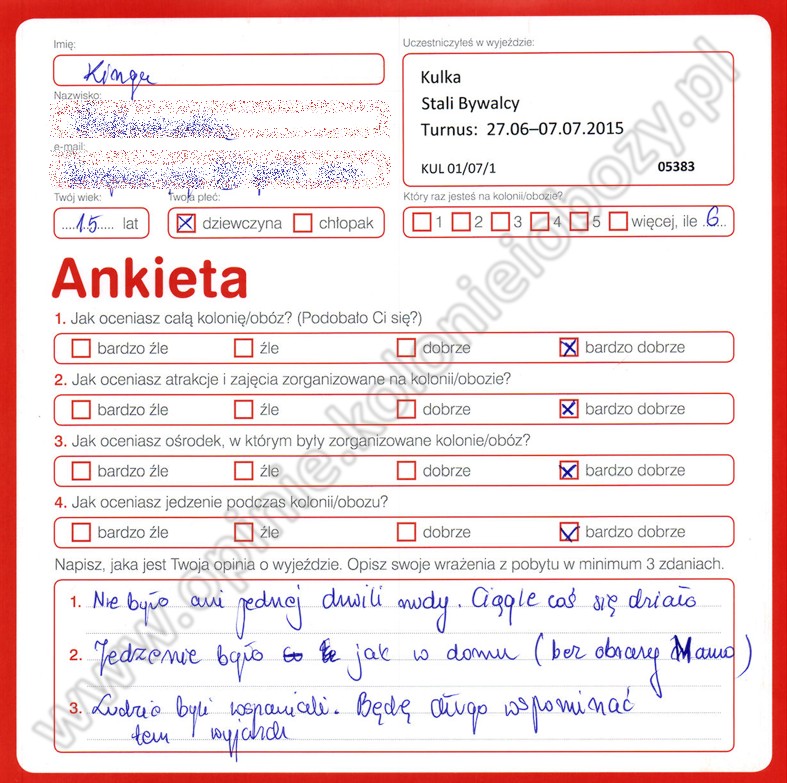 Imię:
Kinga
Uczestniczyłeś w wyjeździe:
Kulka
Stali Bywalcy
Turnus: 27.06–07.07.2015
KUL 01/07/1 05383
Nazwisko:
e-mail:
Twój wiek:
15 lat
Twoja płeć:
dziewczyna chłopak
Który raz jesteś na kolonii/obozie?
1 2 3 4 5 więcej, ile 6
Ankieta
1. Jak oceniasz całą kolonię/obóz? (Podobało Ci się?)
bardzo źle źle dobrze bardzo dobrze
2. Jak oceniasz atrakcje i zajęcia zorganizowane na kolonii/obozie?
bardzo źle źle dobrze bardzo dobrze
3. Jak oceniasz ośrodek, w którym były zorganizowane kolonie/obóz?
bardzo źle źle dobrze bardzo dobrze
4. Jak oceniasz jedzenie podczas kolonii/obozu?
bardzo źle źle dobrze bardzo dobrze
Napisz, jaka jest Twoja opinia o wyjeździe. Opisz swoje wrażenia z pobytu w minimum 3 zdaniach.
1. Nie było ani jednej chwili nudy. Ciągle coś się działo
2. Jedzenie było jak w domu (bez obrazy Mamo)
3. Ludzie byli wspaniali. Będę długo wspominać
ten wyjazd
www.opinie.kolonieiobozy.pl